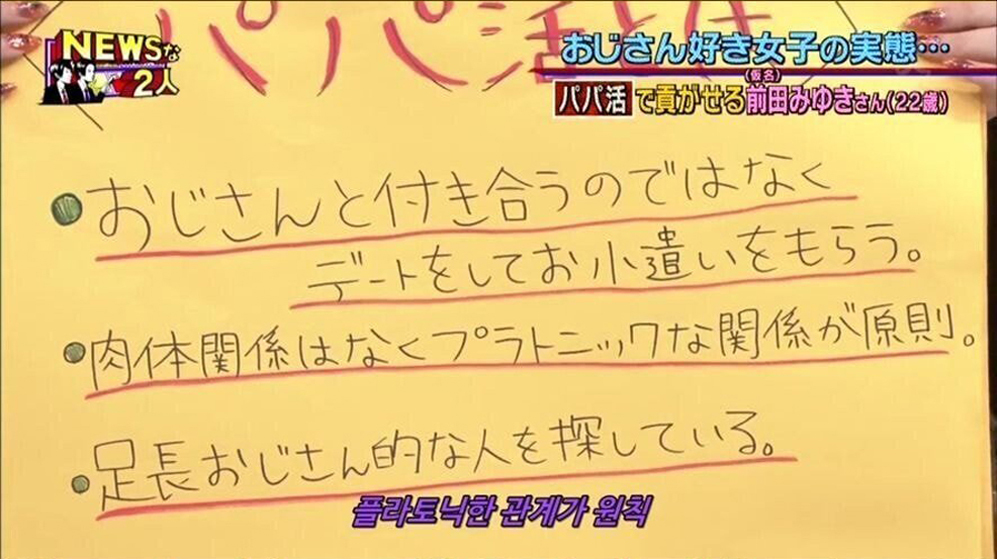 パパ活とは
NEWSな
2人
おじさん好き女子の実態…
(仮名)
パパ活で貢がせる前田みゆきさん(22歳)
おじさんと付き合うのではなく
デートをしてお小遣いをもらう。
肉体関係はなくプラトニックな関係が原則。
足長おじさん的な人を探している。
플라토닉한 관계가 원칙